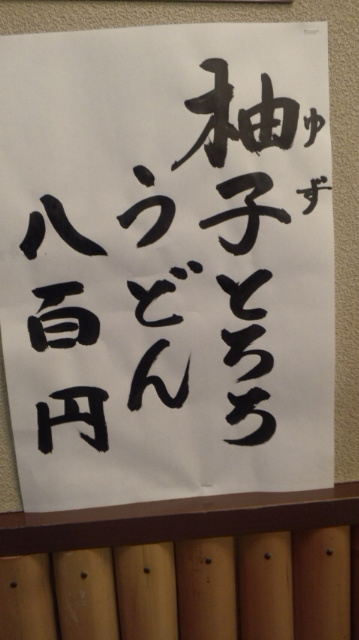 柚子とろろ
ゆず
うどん
八百円